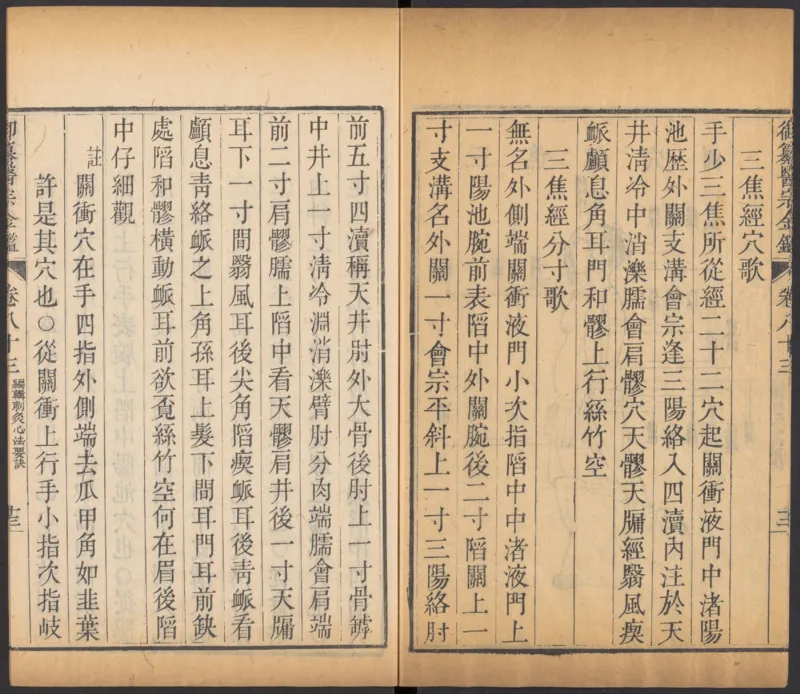 御纂醫宗金鑑 卷八十三
三焦經穴歌
手少三焦所從經二十二穴起關衝液門中渚陽
池歷外關支溝會宗逢三陽絡入四瀆內注於天
井清冷中消濼臑會肩髎穴天髎天牖經翳風瘈
衇顱息角耳門和髎上行絲竹空
三焦經分寸歌
無名外側端關衝液門小次指陷中中渚液門上
一寸陽池腕前表陷中外關腕後二寸陷關上一
寸支溝名外關一寸會宗平斜上一寸三陽絡肘
前五寸四瀆稱天井肘外大骨後肘上一寸骨罅
中井上一寸清冷淵消濼臂肘分肉端臑會肩端
前二寸肩髎臑上陷中看天髎肩井後一寸天牖
耳下一寸間翳風耳後尖角陷瘈衇耳後青衇看
顱息青絡衇之上角孫耳上髮下間耳門耳前缺
處陷和髎橫動衇耳前欲覔絲竹空何在眉後陷
中仔細觀
註 關衝穴在手四指外側端去瓜甲角如韭葉
許是其穴也○從關衝上行手小指次指岐
御纂醫宗金鑑 卷八十三 編輯刺灸心法要訣 十三